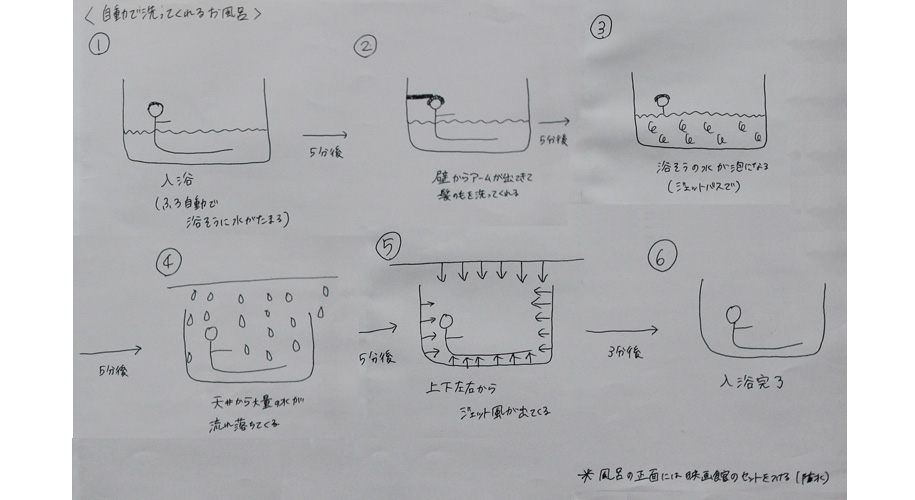 〈自動で洗ってくれるお風呂〉
①
②
③
5分後
5分後
入浴
(ふろ自動で
浴そうに水がたまる)
壁からアームが出てきて
髪の毛を洗ってくれる
浴そうの水が泡になる
(ジェットバスで)
④
⑤
⑥
5分後
5分後
3分後
天井から大量の水が
流れ落ちてくる
上下左右から
ジェット風が出てくる
入浴完了
※風呂の正面には映画館のセットをつける(防水)